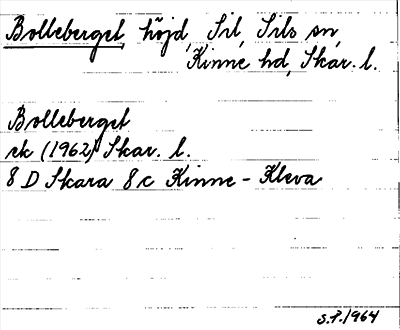 Bolleberget höjd, Sil, Sils sn,
Kinne hd, Skar. l.
Bolleberget
ek (1962) Skar. l.
8 D Skara 8 c Kinne - Kleva
S.P. 1964